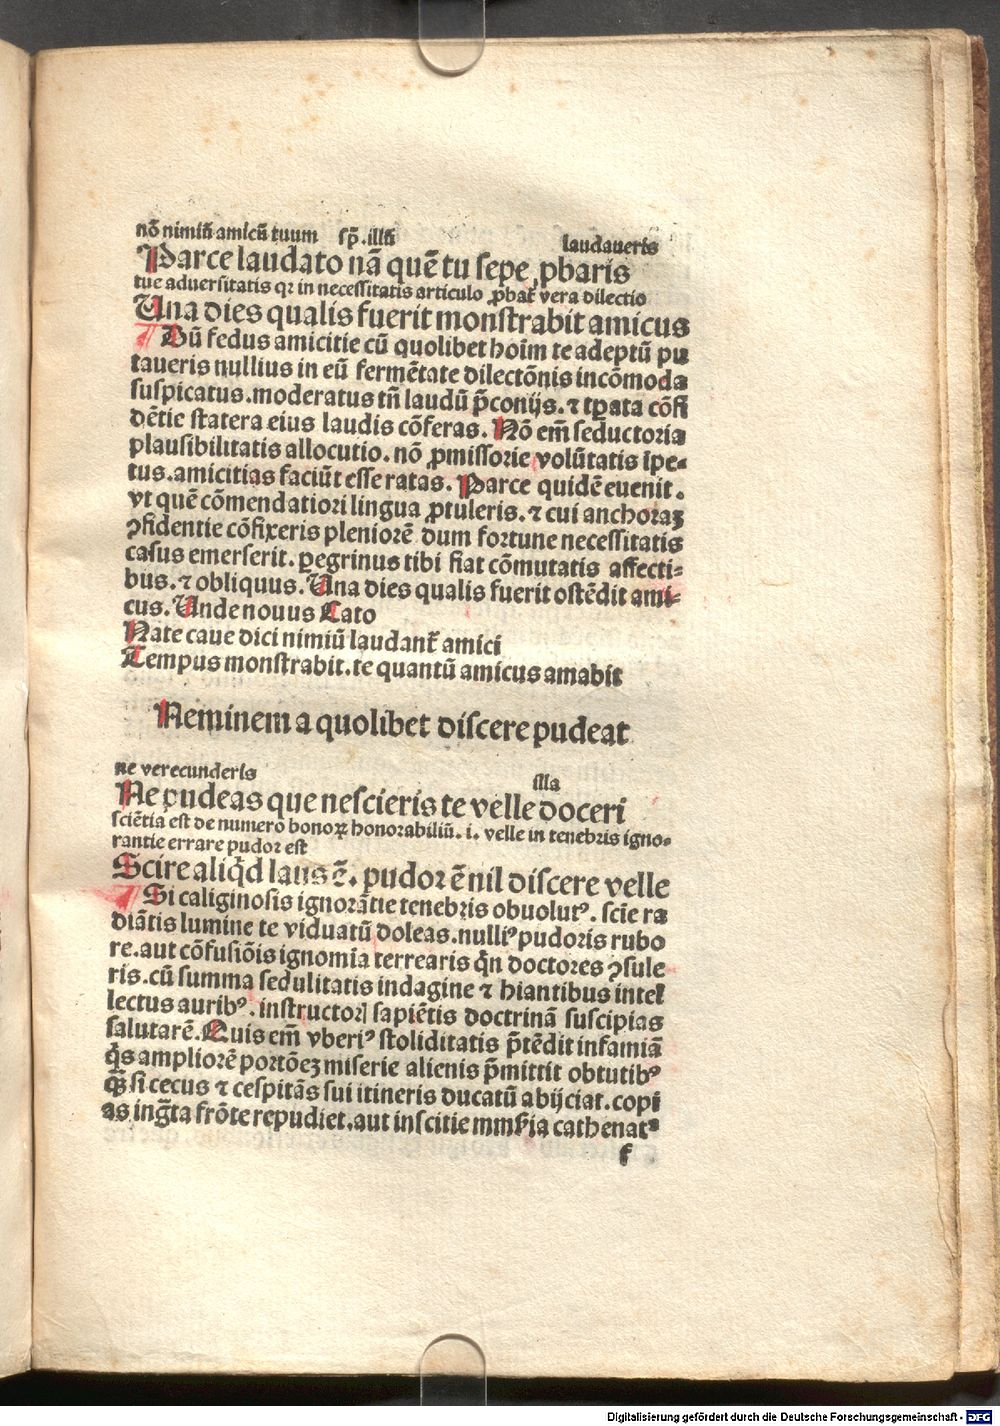 nō nimiū amicū tuum sp̄.illū laudaueris
Parce laudato nā quē tu sepe ꝓbaris
tue aduersitatis qꝛ in necessitatis articulo ꝓbat̄ vera dilectio
Una dies qualis fuerit monstrabit amicus
¶ Dū fedus amicitie cū quolibet hoīm te adeptū pu
taueris nullius in eū fermētate dilectōnis incōmoda
suspicatus.moderatus tn̄ laudū p̄conijs.⁊ tꝑata cōfi
dētie statera eius laudis cōferas. Nō em̄ seductoria
plausibilitatis allocutio.nō ꝓmissorie volūtatis īpe⸗
tus.amicitias faciūt esse ratas. Parce quidē euenit.
vt quē cōmendatiori lingua ꝓtuleris.⁊ cui anchoraꝫ
ꝯfidentie cōfixeris pleniorē dum fortune necessitatis
casus emerserit.ꝑegrinus tibi fiat cōmutatis affecti⸗
bus.⁊ obliquus. Una dies qualis fuerit ostēdit ami⸗
cus. Unde nouus Cato
Nate caue dici nimiū laudant̄ amici
Tempus monstrabit.te quantū amicus amabit
Neminem a quolibet discere pudeat
ne verecunderis illa
Ne pudeas que nescieris te velle doceri
sciētia est de numero bonoꝝ honorabiliū.i. velle in tenebris igno⸗
rantie errare pudor est
Scire aliq̄d laus ē. pudor ē nil discere velle
¶ Si caliginosis ignorātie tenebris obuolutꝰ. scīe ra
diātis lumine te viduatū doleas.nulliꝰ pudoris rubo
re.aut cōfusiōis ignomīa terrearis qn̄ doctores ꝯsule
ris.cū summa sedulitatis indagine ⁊ hiantibus intel
lectus auribꝰ.instructoꝝ sapiētis doctrinā suscipias
salutarē. Quis em̄ vberiꝰ stoliditatis p̄tēdit infamiā
q̄s ampliorē portōeꝫ miserie alienis p̄mittit obtutibꝰ
ꝙ̄ si cecus ⁊ cespitās sui itineris ducatū abijciat.copi
as ingr̄ta frōte repudiet.aut inscitie cathenatꝰ
f
Digitalisierung gefördert durch die Deutsche Forschungsgemeinschaft - DFG